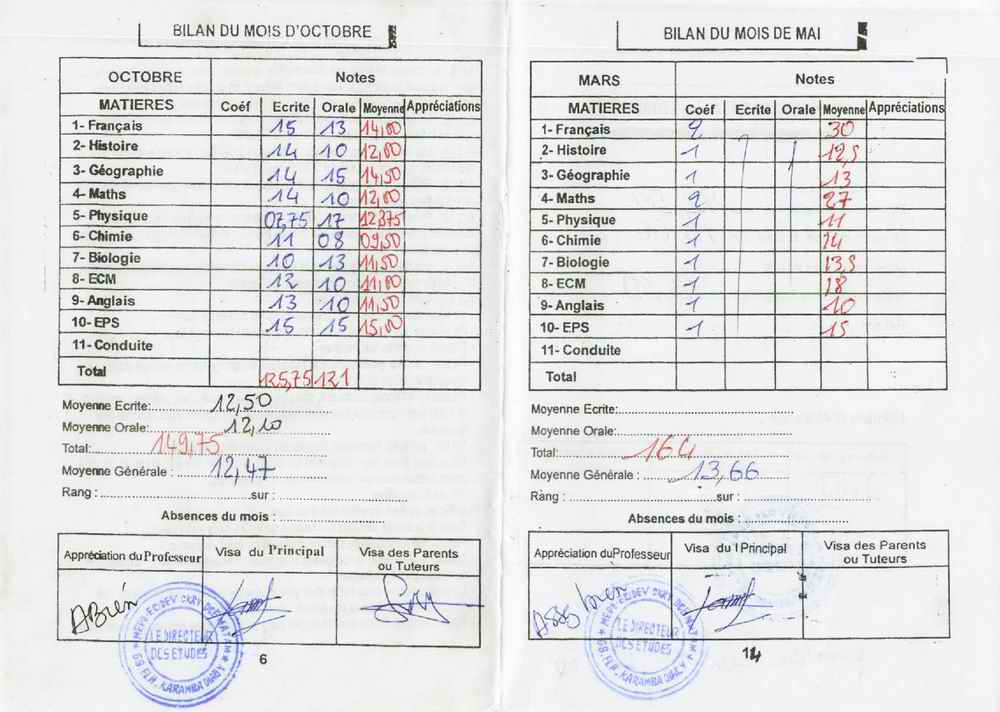 BILAN DU MOIS D'OCTOBRE
OCTOBRE Notes
MATIERES Coéf Ecrite Orale Moyenne Appréciations
1- Français 15 13 14,00
2- Histoire 14 10 12,00
3- Géographie 14 15 14,50
4- Maths 14 10 12,00
5- Physique 07,75 17 12,375
6- Chimie 11 08 09,50
7- Biologie 10 13 11,50
8- ECM 12 10 11,00
9- Anglais 13 10 11,50
10- EPS 15 15 15,00
11- Conduite
Total 125,75 121
Moyenne Ecrite: 12,50
Moyenne Orale: 12,10
Total: 149,75
Moyenne Générale : 12,47
Rang : sur :
Absences du mois :
Appréciation du Professeur Visa du Principal Visa des Parents
ou Tuteurs
ABien
LE DIRECTEUR
DES ETUDES
6
BILAN DU MOIS DE MAI
MARS Notes
MATIERES Coéf Ecrite Orale Moyenne Appréciations
1- Français 2 30
2- Histoire 1 12,5
3- Géographie 1 13
4- Maths 2 27
5- Physique 1 11
6- Chimie 1 14
7- Biologie 1 13,5
8- ECM 1 18
9- Anglais 1 10
10- EPS 1 15
11- Conduite
Total
Moyenne Ecrite:
Moyenne Orale:
Total: 164
Moyenne Générale : 13,66
Rang : sur :
Absences du mois :
Appréciation du Professeur Visa du Principal Visa des Parents
ou Tuteurs
Ass bien
LE DIRECTEUR
DES ETUDES
14